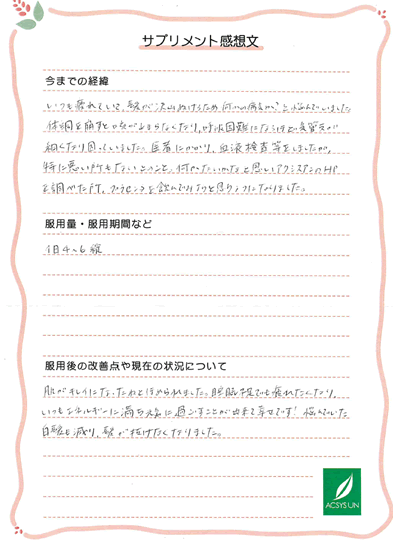 サプリメント感想文
今までの経緯
いつも疲れていて、髪が沢山ぬけるため何かの病気かな?と悩んでいました
体調を崩すと咳が止まらなくなり、呼吸困難になるほど気管支が
細くなり困っていました。医者にかかり、血液検査等をしましたが、
特に悪い所もないとのこと、何かないかなと思いアクシスアンのHP
を調べた所、プラセンタを飲んでみようと思うようになりました。
服用量・服用期間など
1日4~6錠
服用後の改善点や現在の状況について
肌がキレイになったねとほめられました。睡眠不足でも疲れにくくなり、
いつもエネルギーに満ち元気に過ごすことが出来て幸せです! 悩んでいた
白髪も減り、髪が抜けなくなりました。
ACSYSUN